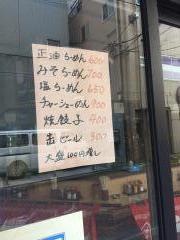 正油らーめん 600
みそらーめん 700
塩らーめん 650
チャーシューめん 900
焼餃子 400
缶ビール 300
大盛100円増し